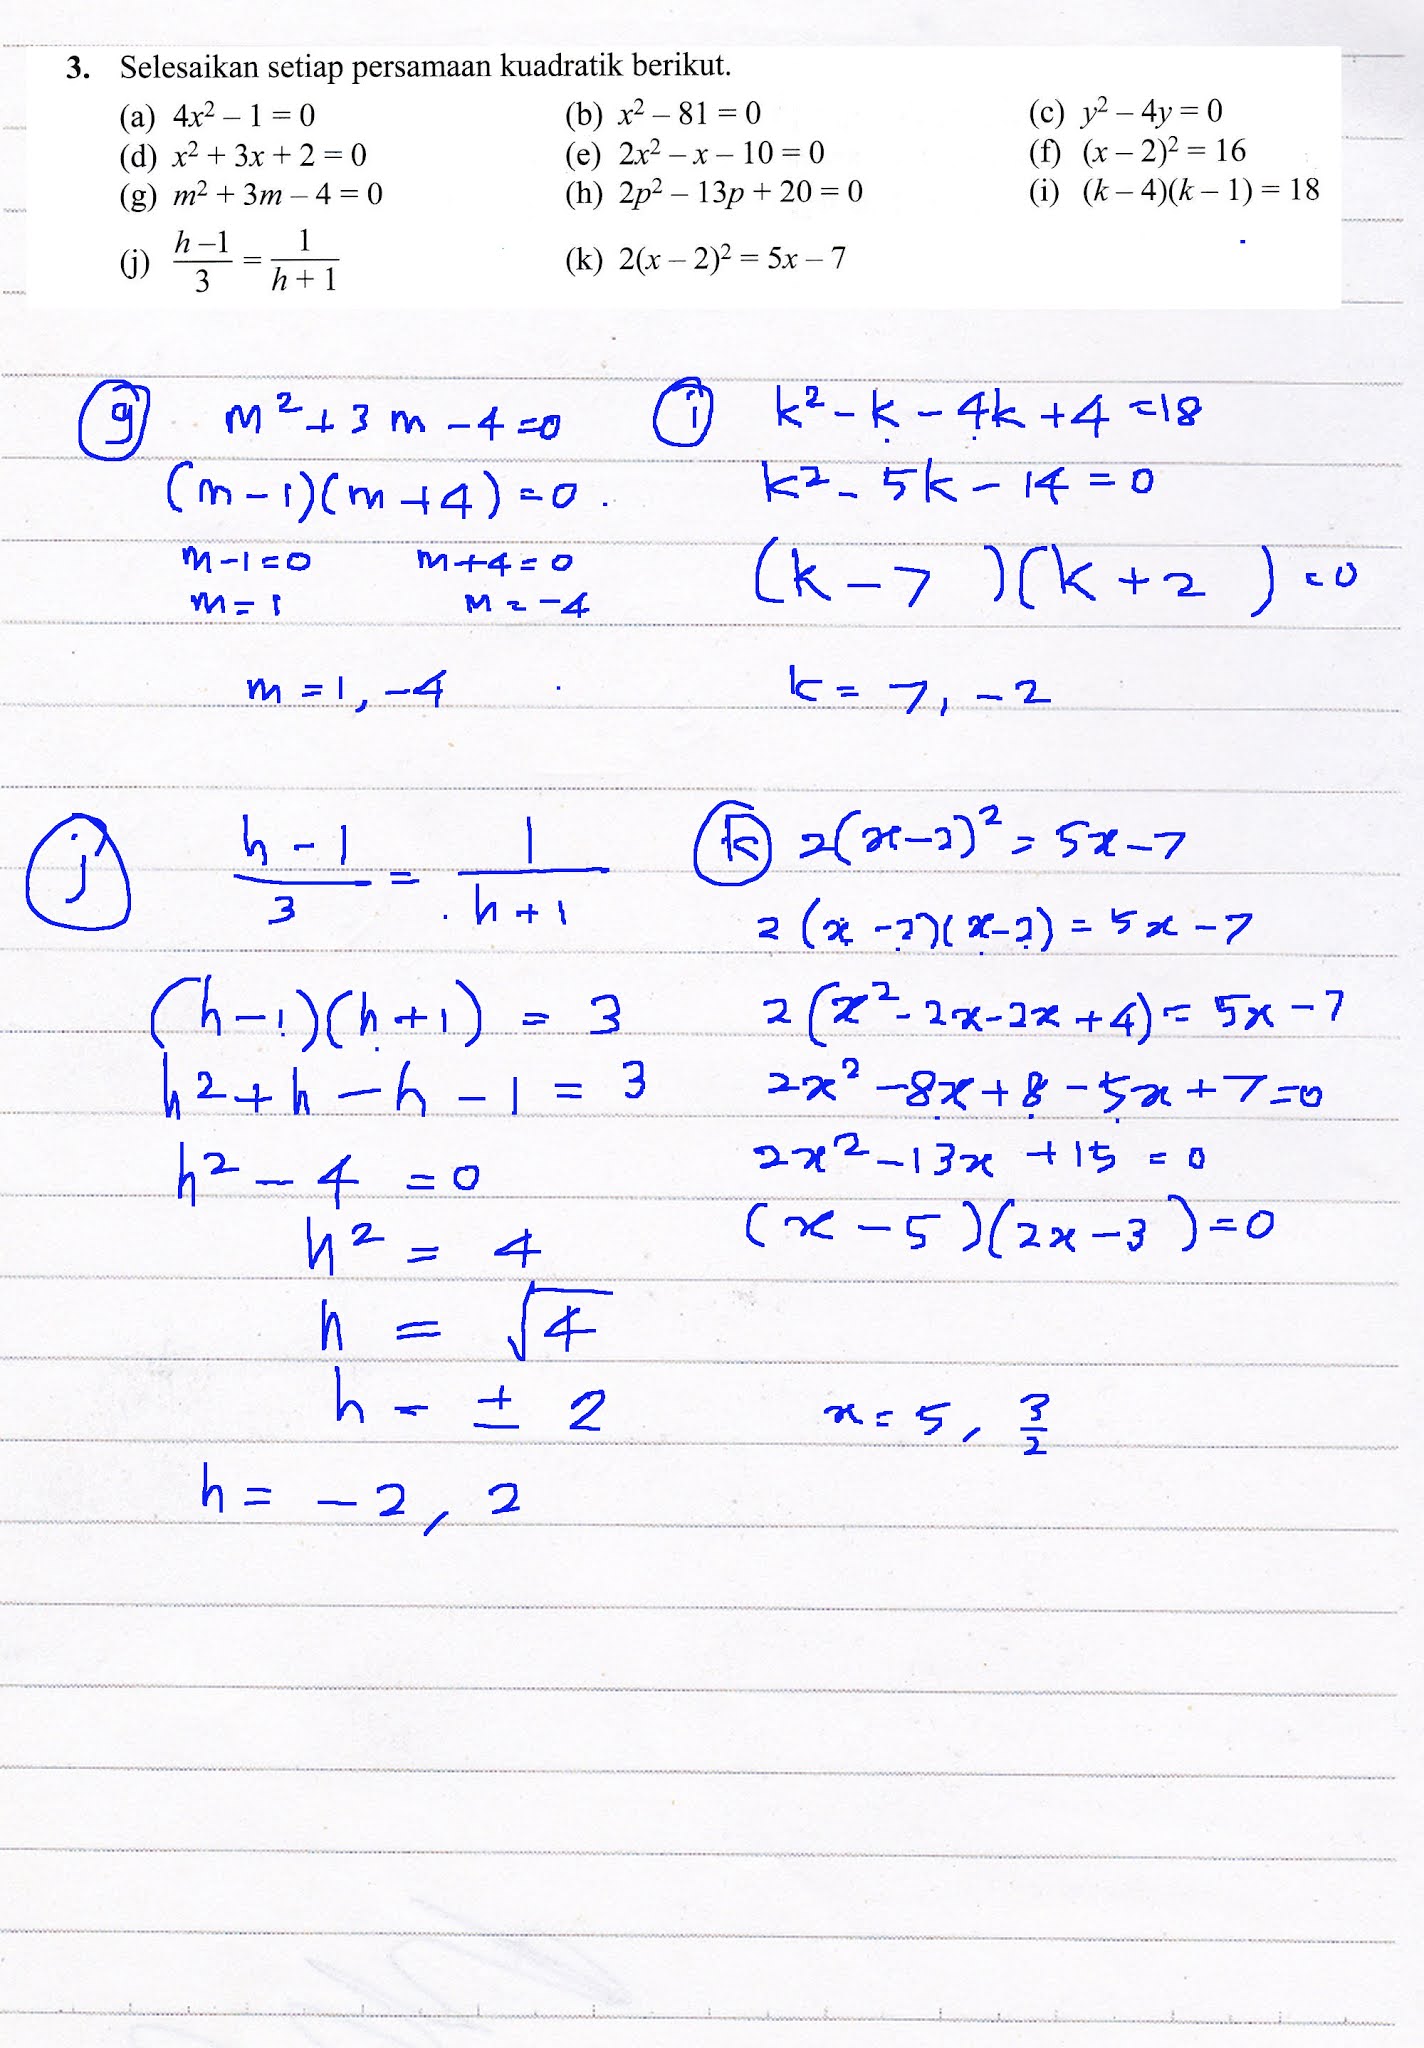 3. Selesaikan setiap persamaan kuadratik berikut.
(a) 4x² – 1 = 0 (b) x² – 81 = 0 (c) y² – 4y = 0
(d) x² + 3x + 2 = 0 (e) 2x² – x – 10 = 0 (f) (x – 2)² = 16
(g) m² + 3m – 4 = 0 (h) 2p² – 13p + 20 = 0 (i) (k – 4)(k – 1) = 18
(j) (h – 1)/3 = 1/(h + 1) (k) 2(x – 2)² = 5x – 7
g m² + 3m – 4 = 0
(m – 1)(m + 4) = 0.
m – 1 = 0 m + 4 = 0
m = 1 m = –4
m = 1, –4
i k² – k – 4k + 4 = 18
k² – 5k – 14 = 0
(k – 7)(k + 2) = 0
k = 7, –2
j (h – 1)/3 = 1/(h + 1)
(h – 1)(h + 1) = 3
h² + h – h – 1 = 3
h² – 4 = 0
h² = 4
h = √4
h = ± 2
h = –2, 2
k 2(x – 2)² = 5x – 7
2(x – 2)(x – 2) = 5x – 7
2(x² – 2x – 2x + 4) = 5x – 7
2x² – 8x + 8 – 5x + 7 = 0
2x² – 13x + 15 = 0
(x – 5)(2x – 3) = 0
x = 5, 3/2